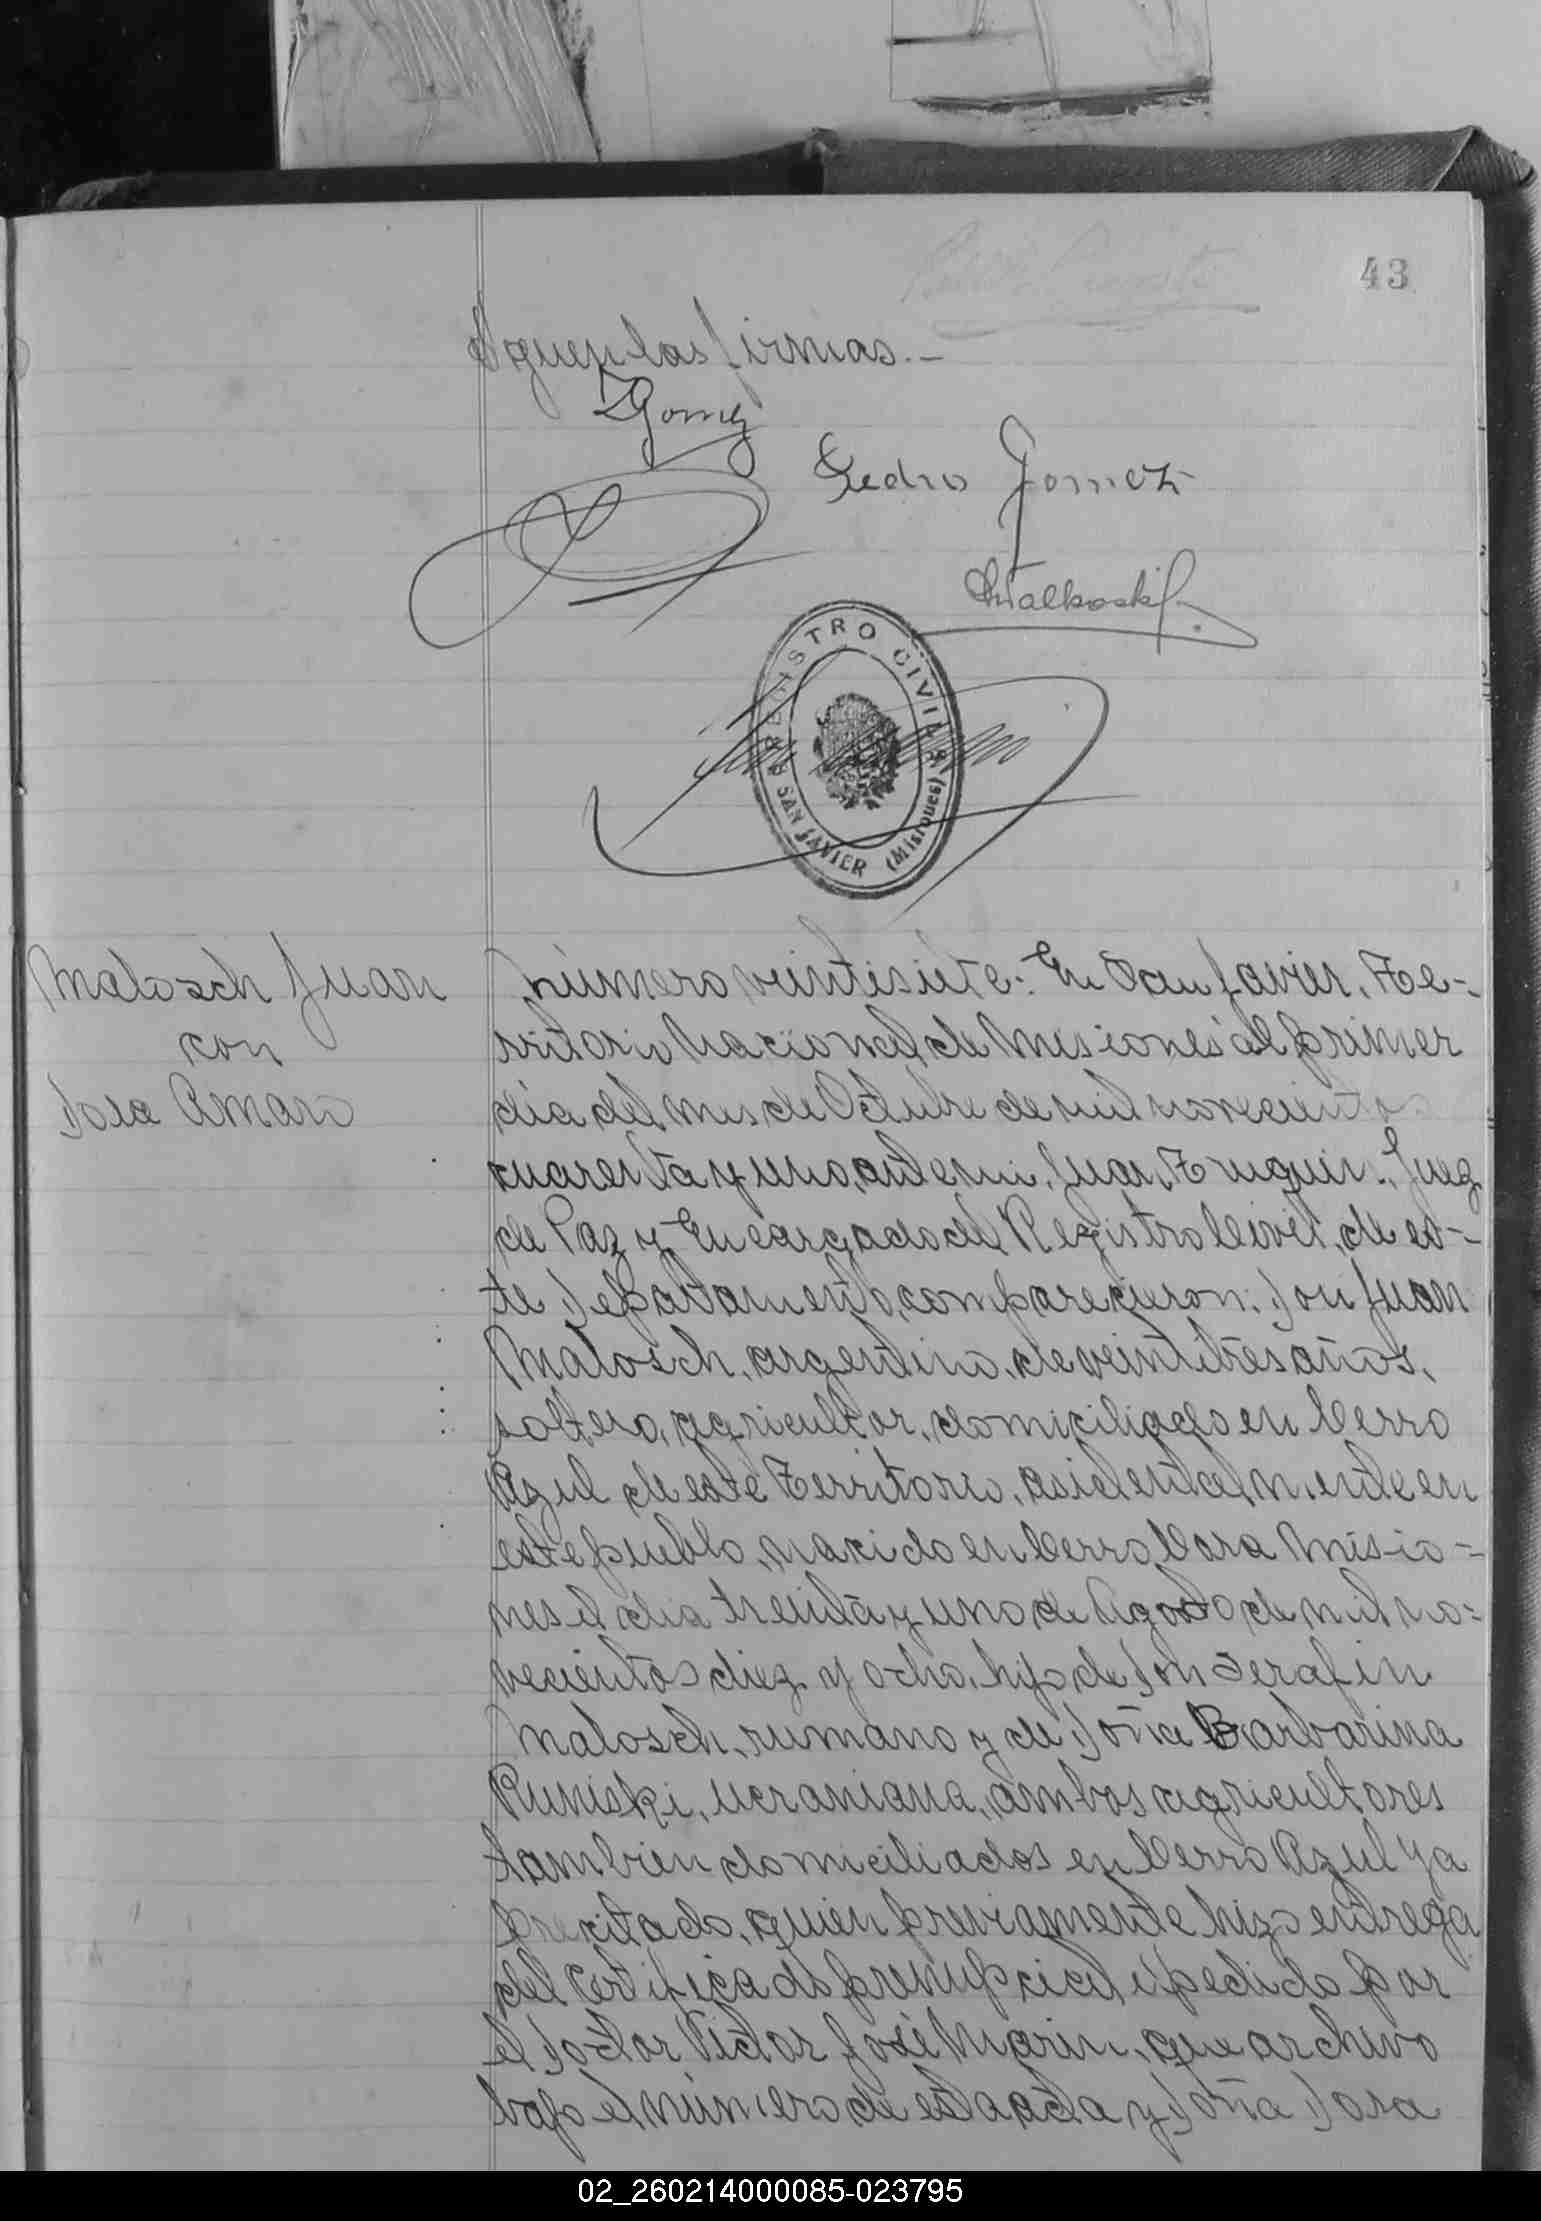 43
siguen las firmas.-
Gomez
Pedro Gomez
REGISTRO CIVIL
SAN JAVIER (Misiones)
Malosch Juan
con
Dora Amaro
Número veintisiete: En San Javier, Te-
rritorio Nacional de Misiones al primer
día del mes de Octubre de mil novecientos
cuarenta y uno, ante mi, Juan Juez
de Paz y Encargado del Registro Civil, de es-
te Departamento, comparecieron: Don Juan
Malosch, argentino, de veintitres años,
soltero, agricultor, domiciliado en Cerro
Azul de este Territorio, asidentalmente en
este pueblo, nacido en Cerro Cora Misio-
nes el dia treinta y uno de Agosto de mil no-
vecientos diez y ocho, hijo de Don Serafin
Malosch, rumano y de Doña Barbarina
Runiski, ucraniana, ambos agricultores
tambien domiciliados en Cerro Azul ya
precitado, quien previamente hizo entrega
del certificado prenupcial expedido por
el Doctor Victor José Marin, que archivo
bajo el número de esta acta y Doña Dora
02_260214000085-023795